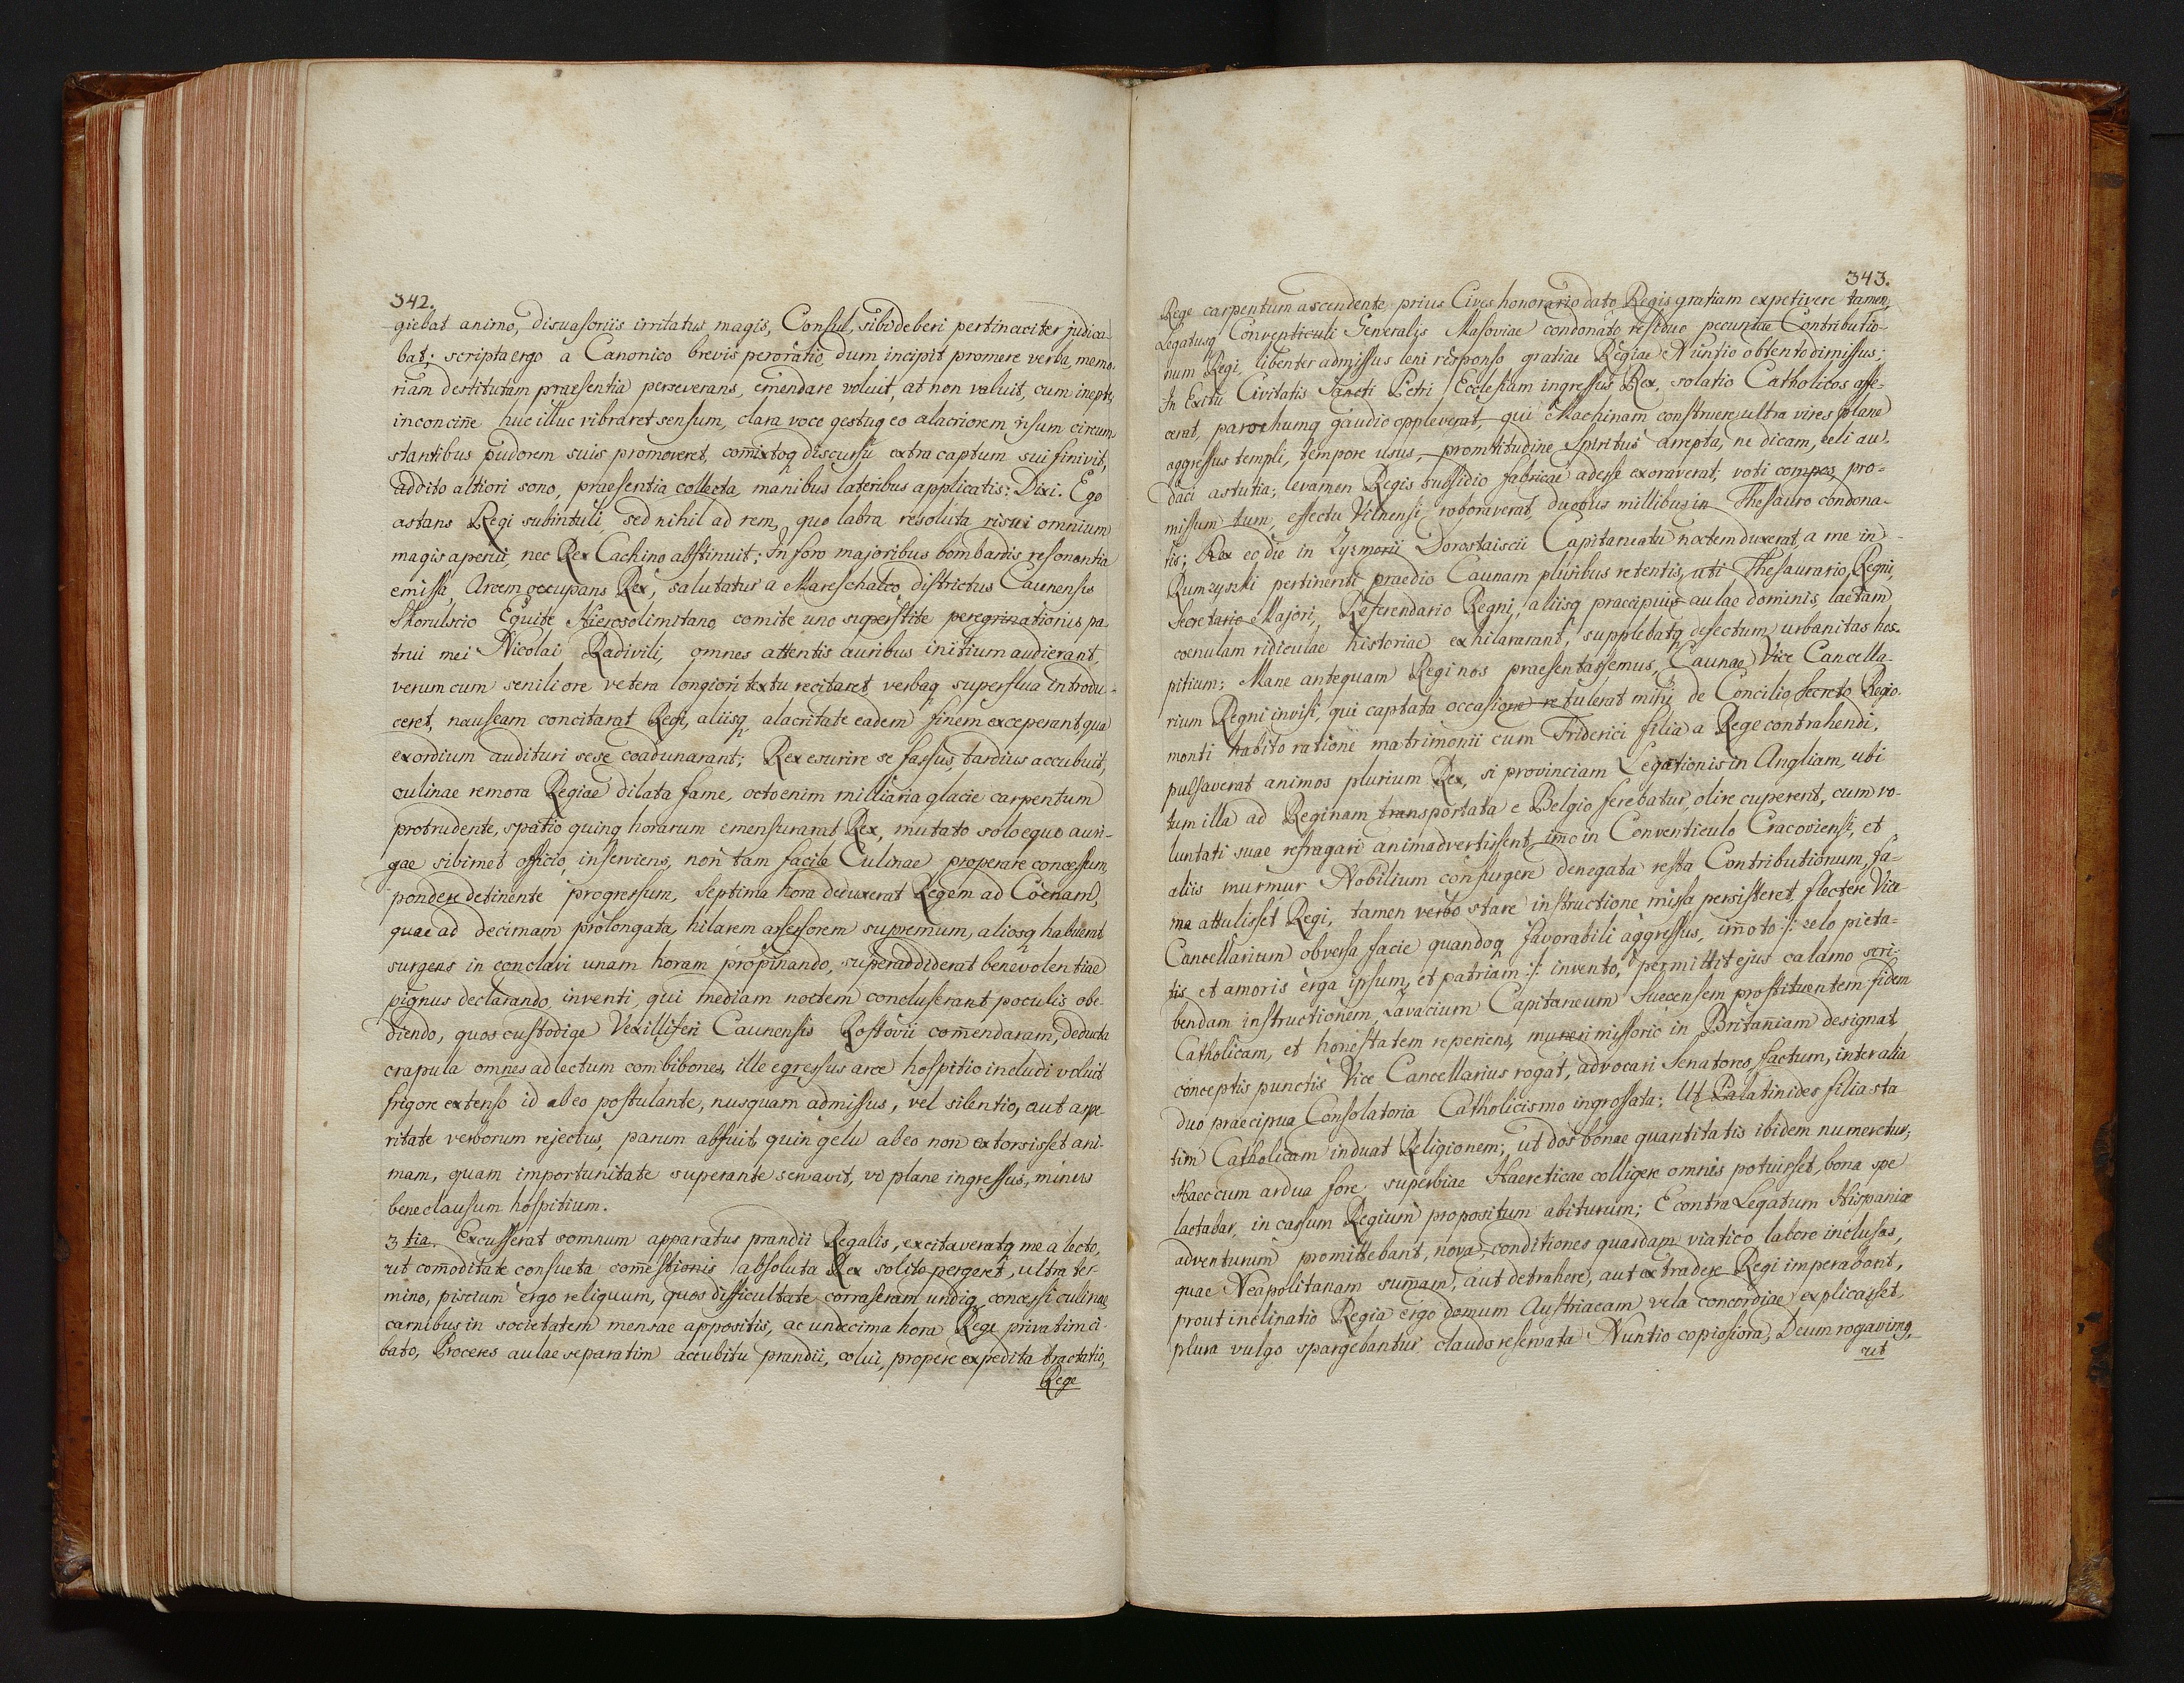 342.
giebat animo, disuasoriis irritatus magis, Consul, sibi deberi pertinaciter judica-
bat; scripta ergo a Canonico brevis peroratio, dum incipit promere verba, memo-
riam destitutam praesentia perseverans, emendare voluit, at non valuit, cum inepte,
inconcin̄e huc illuc vibraret sensum, clara voce gestuq eo alacriorem risum circum
stantibus pudorem suis promoveret, com̄ixtoq discursu extra captum sui finivit,
addito altiori sono, praesentia collecta, manibus lateribus applicatis: Dixi. Ego
astans Regi subintuli, sed nihil ad rem, quo labra resoluta risui omnium
magis aperui, nec Rex Cachino abstinuit; In foro majoribus bombardis resonantia
emissa, Arcem occupans Rex, salutatus a Mareschalco districtus Caunensis
Skorulscio Equite Hierosolimitano, comite uno superstite peregrinationis pa
trui mei Nicolai Radivili, omnes attentis auribus initium audierant,
verum cum senili ore vetera longiori textu recitaret verbaq superflua introdu-
ceret, nauseam concitarat Regi, aliisq alacritate eadem finem exceperant, qua
exordium audituri sese coadunarant; Rex esurire se fassus, tardius accubuit,
culinae remora Regiae dilata fame, octo enim milliaria glacie carpentum
protrudente, spatio quinq horarum emensurarat Rex, mutato solo equo auri-
gae sibimet officio, inserviens, non tam facile Culinae properare concessum,
pondere detinente progressum, Septima hora deduxerat Regem ad Coenam,
quae ad decimam prolongata, hilarem assessorem supremum, aliosq habuerat
surgens in conclavi unam horam propinando, superaddiderat benevolentiae
pignus declarando, inventi, qui mediam noctem concluserant poculis obe-
diendo, quos custodiae Vexilliferi Caunensis Rostovii com̄endaram, deducta
crapula omnes ad lectum combibones, ille egressus arce hospitio includi voluit
frigore extenso id ab eo postulante, nusquam admissus, vel silentio, aut aspe
ritate verborum rejectus, parum abfuit, quin gelu ab eo non extorsisset ani-
mam, quam importunitate superante servavit, vi plane ingressus, minus
bene clausum hospitium.
3 tia. Excusserat somnum apparatus prandii Regalis, excitaveratq me a lecto,
ut com̄oditate consueta com̄estionis absoluta Rex solito pergeret, ultra ter-
mino, piscium ergo reliquum, quos difficultate corraseram undiq, concessi culinae
carnibus in societatem mensae appositis, ac undecima hora Rege privatim ci-
bato, Proceres aulae separatim accubitu prandii, colui, propere expedita tractatio,
Rege
343.
Rege carpentum ascendente prius Cives honorario dato Regis gratiam expetivere tamen,
Legatusq Conventiculi Generalis Masoviae condonato residuo pecuniae Contributio-
num Regi, libenter admissus leni responso gratiae Regiae Nuntio obtento dimissus;
In Exitu Civitatis Sancti Petri Ecclesiam ingressus Rex, solatio Catholicos affe-
cerat, parochumq gaudio oppleverat, qui Machinam construere ultra vires plane
aggressus templi, tempore usus, promtitudine Spiritus arrepta, ne dicam, veli au-
daci astutia, levamen Regis subsidio fabricae adesse exoraverat, voti compos, pro-
missum tum, effectu Vilnensi roboraverat, duobus millibus in Thesauro condona-
tis; Rex eo die in Zyzmorii Dorostaiscii Capitaneatu noctem duxerat, a me in
Rumzyski pertinenti praedio Caunam pluribus retentis, uti Thesaurario Regni,
Secretario Majori, Referendario Regni, aliisq praecipuis aulae dominis, laetam
coenulam ridiculae historiae exhilararant, supplebatq defectum urbanitas hos-
pitium; Mane antequam Regi nos praesentassemus, Caunae Vice Cancella-
rium Regni invisi, qui captata occasione retulerat mihi de Concilio Secreto Regio-
monti habito ratione matrimonii cum Friderici filia a Rege contrahendi,
pulsaverat animos plurium Rex, si provinciam Legationis in Angliam, ubi
tum illa ad Reginam transportata e Belgio ferebatur, olire cuperent, cum vo-
luntati suae refragari animadvertissent, im̄o in Conventiculo Cracoviensi, et
aliis murmur Nobilium consurgere denegata resta Contributionum, fa-
ma attulisset Regi, tamen verbo stare instructione missa persisteret, flectere Vice
Cancellarium obversa facie quandoq favorabili aggressus, im̄oto :/: zelo pieta-
tis et amoris erga ipsum, et patriam :/: invento, permittit ejus calamo scri-
bendam instructionem, Zavacium Capitaneum Suecensem prostituentem fidem
Catholicam, et honestatem reperiens, muneri missorio in Britan̄iam designat,
conceptis punctis Vice Cancellarius rogat, advocari Senatores, factum, inter alia
duo praecipua Consolatoria Catholicismo ingrossata; Ut Palatinides filia sta
tim Catholicam induat Religionem; ut dos bonae quantitatis ibidem numeretur;
Haec cum ardua fore superbiae Haereticae colligere omnis potuisset, bona spe
lactabar, in cassum Regium propositum abiturum; E contra Legatum Hispaniae
adventurum promittebant, nova, conditiones quasdam viatico labore inclusas,
quae Neapolitanam sum̄am, aut detrahere, aut extradere Regi imperabant,
prout inclinatio Regia ergo domum Austriacam vela concordiae explicasset,
plura vulgo spargebantur clauds reservata Nuntio copiosiora, Deum rogavimq,
ut